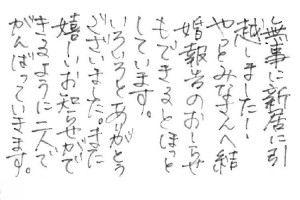 無事に新居に引
越しました！
やっとみなさんへ結
婚報告のおしらせ
もできるとほっと
しています。
いろいろとありがとう
ございました。また
嬉しいお知らせがで
きるように二人で
がんばっていきます。